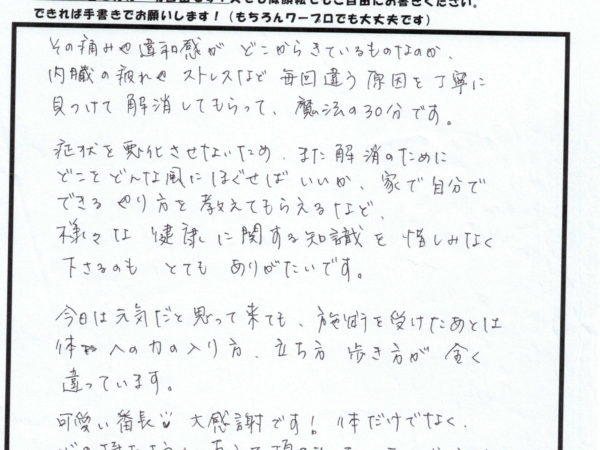 できれば手書きでお願いします!(もちろんワープロでも大丈夫です)
その痛みや違和感が どこからきているものなのか、
内臓の疲れや ストレスなど 毎回違う原因を丁寧に
見つけて 解消してもらって、魔法の30分です。
症状を悪化させないため、また解消のために
どこをどんな風にほぐせばいいか、家で自分で
できる やり方を 教えてもらえるなど、
様々な 健康に関する知識を 惜しみなく
下さるのも とても ありがたいです。
今日は元気だと思って来ても、施術を受けたあとは
体への力の入り方、立ち方 歩き方が 全く
違っています。
可愛い番長 大感謝です! 体だけでなく、